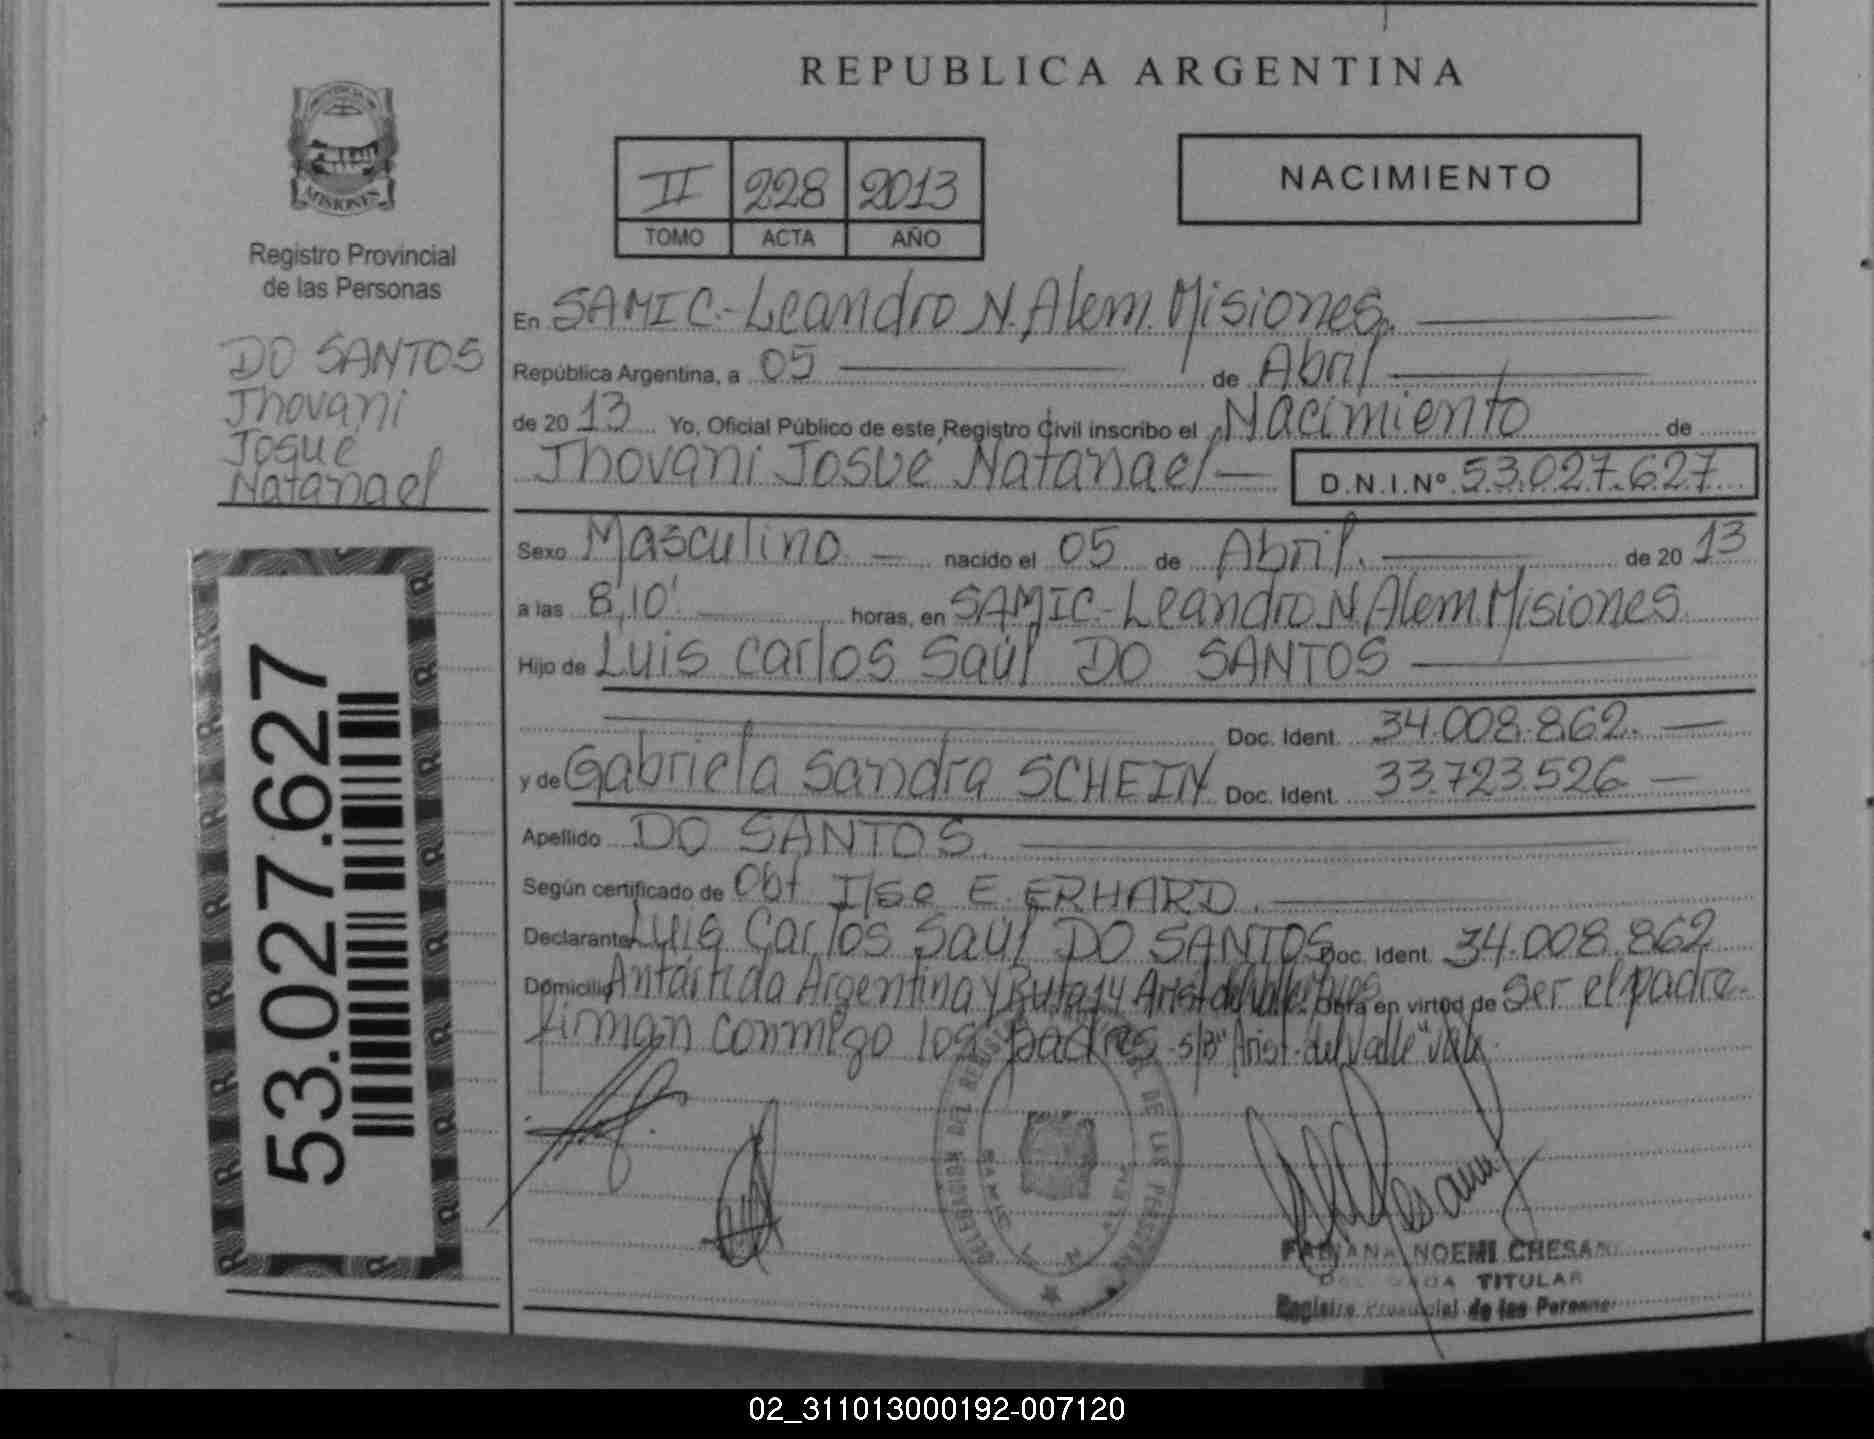 REPUBLICA ARGENTINA
PROVINCIA DE
MISIONES
Registro Provincial
de las Personas
DO SANTOS
Jhovani
Josué
Natanael
53.027.627
II 228 2013
TOMO ACTA AÑO
NACIMIENTO
En SAMIC.-Leandro N. Alem. Misiones.
República Argentina, a 05 de Abril
de 2013 Yo, Oficial Público de este Registro Civil inscribo el Nacimiento de
Jhovani Josué Natanael D.N.I.Nº 53.027.627
Sexo Masculino. nacido el 05 de Abril. de 2013
a las 8,10' horas, en SAMIC.-Leandro N. Alem. Misiones.
Hijo de Luis Carlos Saúl DO SANTOS
Doc. Ident. 34.008.862.
y de Gabriela Sandra SCHEIN Doc. Ident. 33.723.526
Apellido DO SANTOS.
Según certificado de Obt Ilse E. ERHARD.
Declarante Luis Carlos Saúl DO SANTOS Doc. Ident. 34.008.862
Domicilio Antártida Argentina y Ruta 14 Arist. del Valle obra en virtud de Ser el padre.
firman conmigo los padres. s/B "Arist. del Valle" Vale.
DE LAS PERSONAS
FABIANA NOEMI CHESANI
DELEGADA TITULAR
Registro Provincial de las Personas
02_311013000192-007120